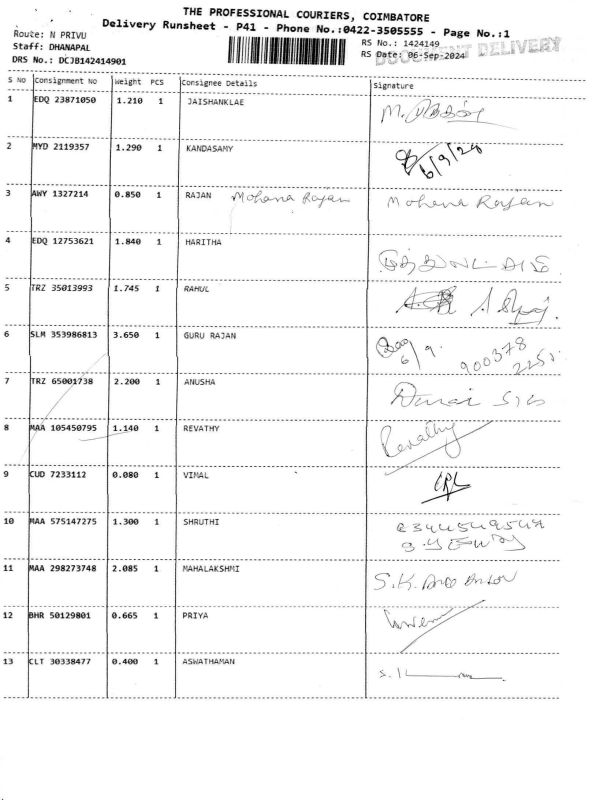 THE PROFESSIONAL COURIERS, COIMBATORE
Delivery Runsheet - P41 - Phone No.:0422-3505555 - Page No.:1
Route: N PRIVU
Staff: DHANAPAL
DRS No.: DCJB142414901
RS No.: 1424149
RS Date: 06-Sep-2024
DOCUMENT DELIVERY
S No Consignment No Weight PCS Consignee Details Signature
1 EDQ 23871050 1.210 1 JAISHANKLAE
2 MYD 2119357 1.290 1 KANDASAMY 6/9/24
3 AWY 1327214 0.850 1 RAJAN Mohana Rajan Mohana Rajan
4 EDQ 12753621 1.840 1 HARITHA
5 TRZ 35013993 1.745 1 RAHUL
6 SLM 353986813 3.650 1 GURU RAJAN 6/9 900378
7 TRZ 65001738 2.200 1 ANUSHA
8 MAA 105450795 1.140 1 REVATHY Revathy
9 CUD 7233112 0.080 1 VIMAL
10 MAA 575147275 1.300 1 SHRUTHI
11 MAA 298273748 2.085 1 MAHALAKSHMI S.K.
12 BHR 50129801 0.665 1 PRIYA
13 CLT 30338477 0.400 1 ASWATHAMAN